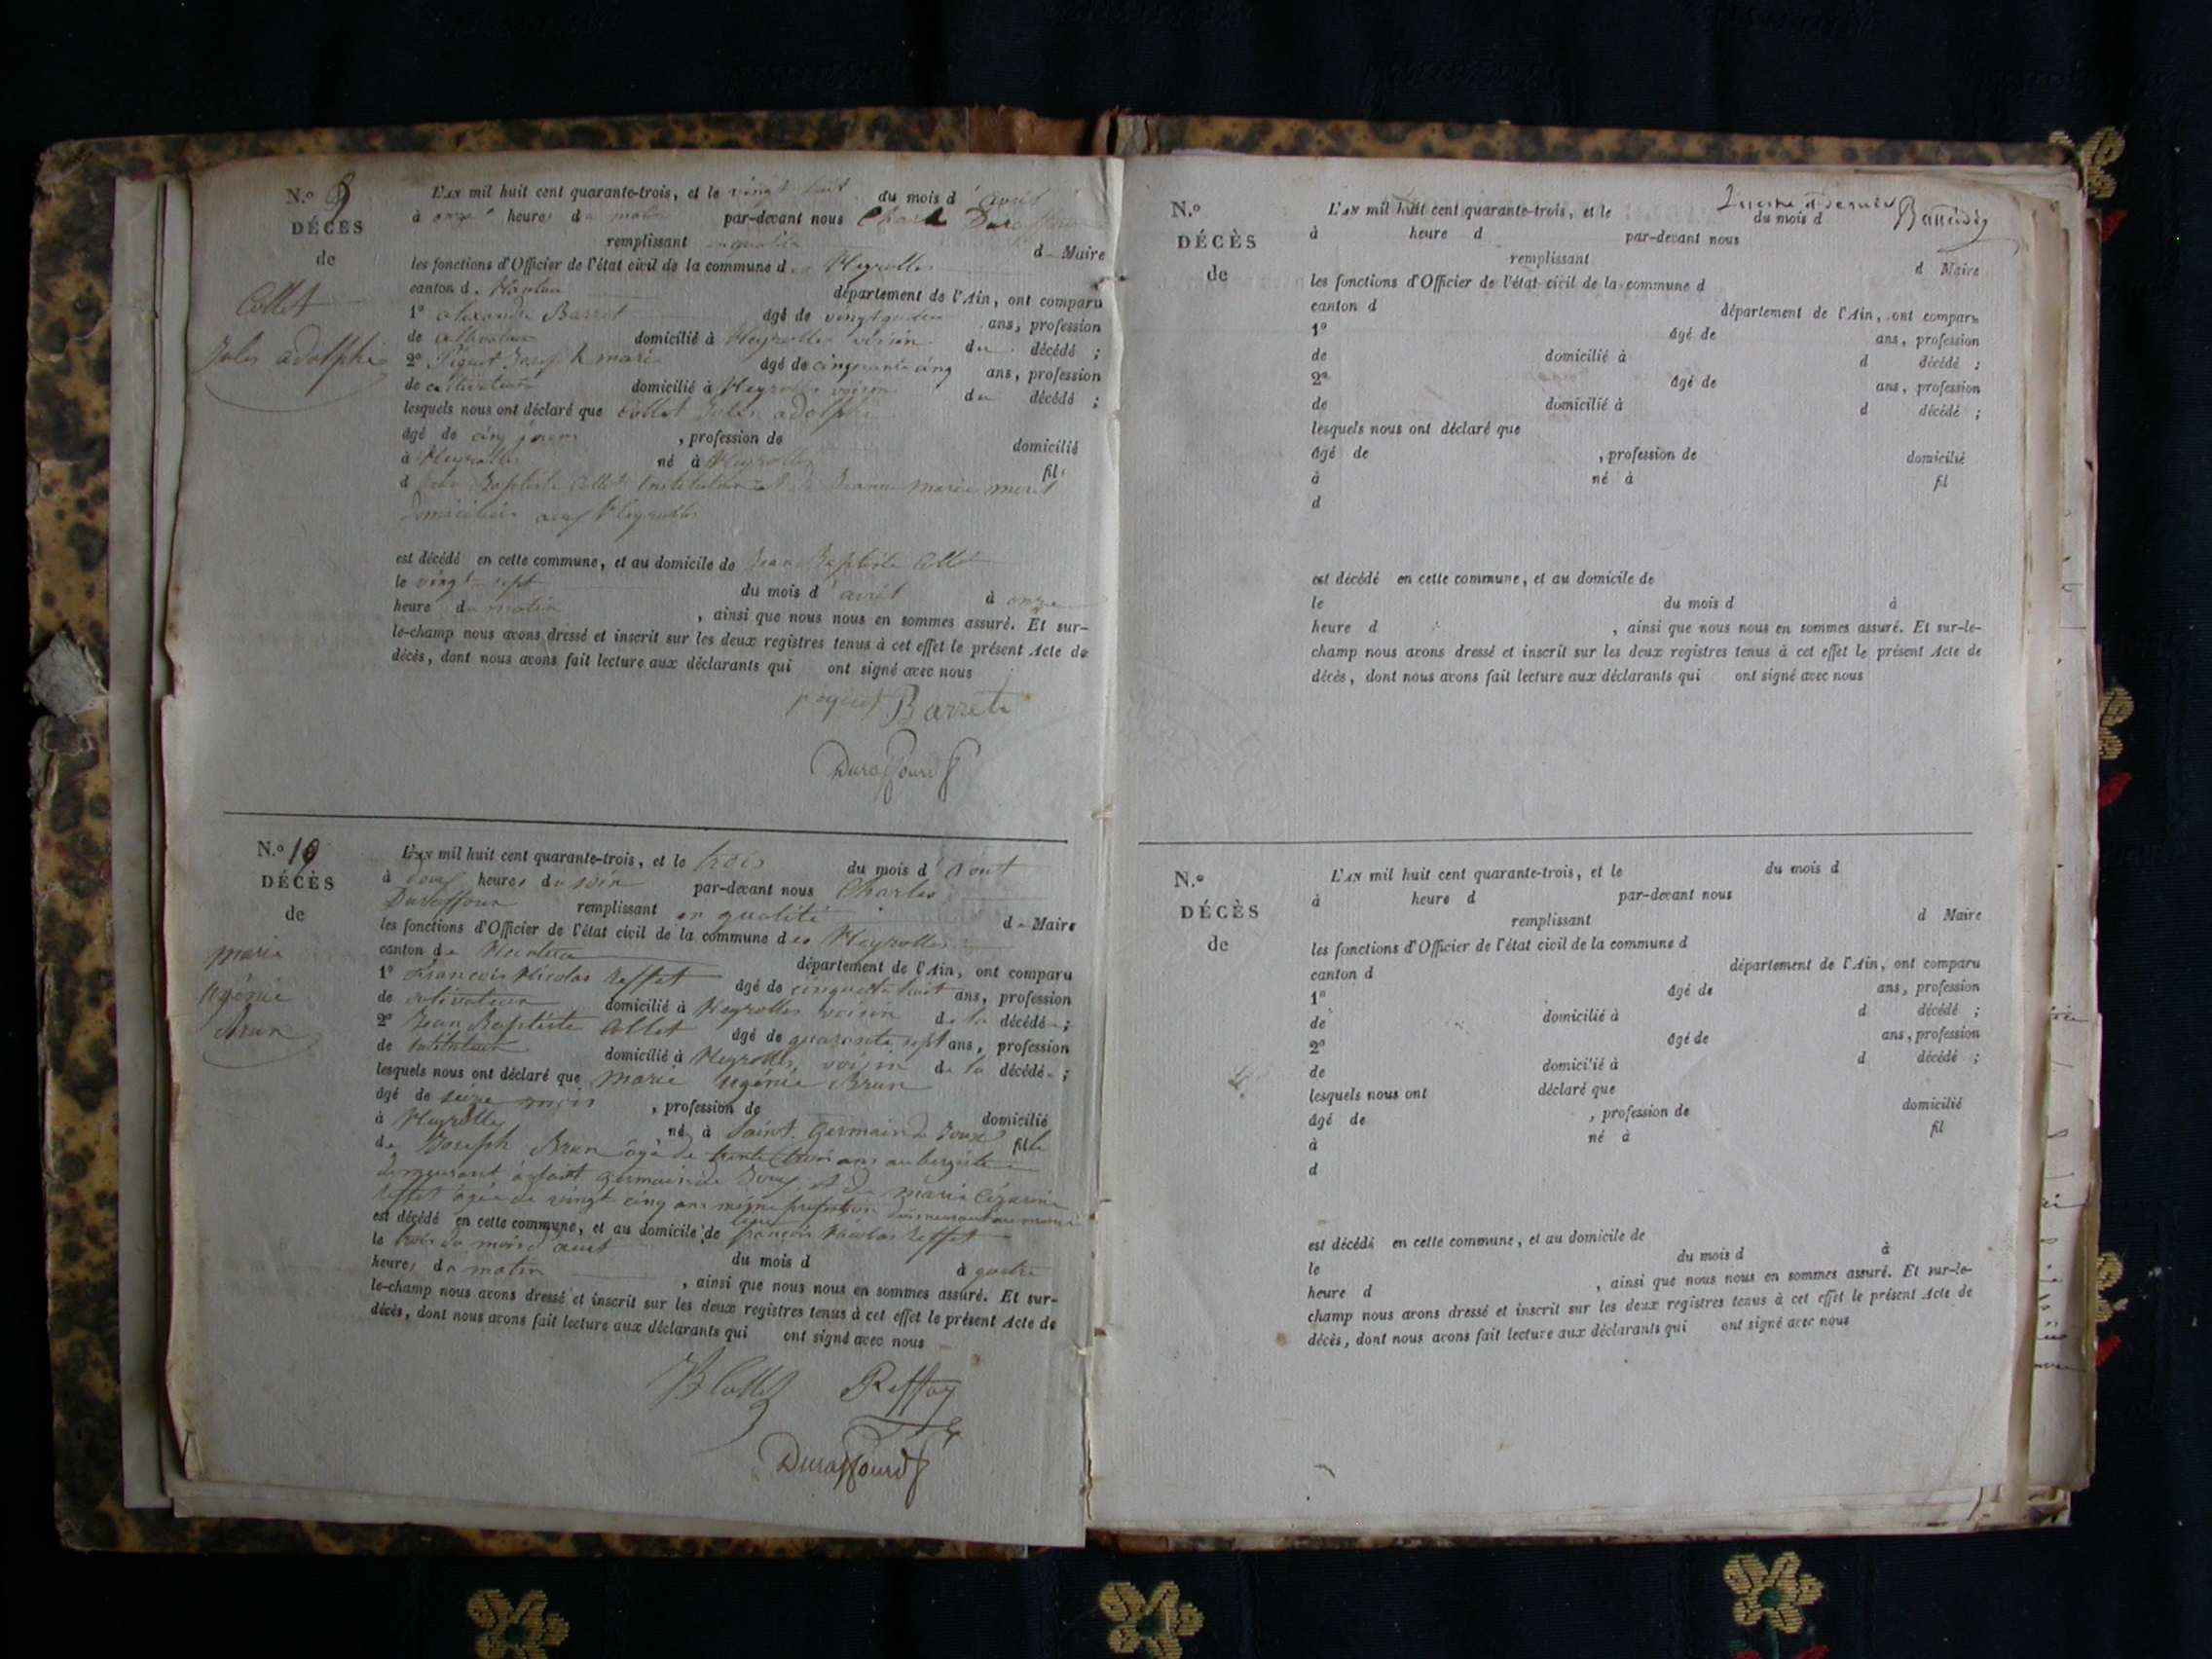 N.o 9
DÉCÈS
de
Collet
Jules adolphe
L'AN mil huit cent quarante-trois, et le vingt huit du mois d'
à onze heures du matin par-devant nous Charle
remplissant en qualité de Maire
les fonctions d'Officier de l'état civil de la commune des Neyrolles
canton de Nantua département de l'Ain, ont comparu
1o alexandre Barret âgé de ans, profession
de domicilié à Neyrolles voisin du décédé ;
2o Poguet Joseph marie âgé de cinquante cinq ans, profession
de cultivateur domicilié à Neyrolles voisin du décédé ;
lesquels nous ont déclaré que Collet Jules adolphe
âgé de cinq jours , profession de domicilié
à Neyrolles né à Neyrolles fils
d Jean Baptiste Collet instituteur et de Jeanne marie
domiciliés aux Neyrolles
est décédé en cette commune, et au domicile de Jean Baptiste Collet
le vingt-sept du mois d' à onze
heure du matin , ainsi que nous nous en sommes assuré. Et sur-
le-champ nous avons dressé et inscrit sur les deux registres tenus à cet effet le présent Acte de
décès, dont nous avons fait lecture aux déclarants qui ont signé avec nous
poguet Barret
Duraffourd
N.o 10
DÉCÈS
de
marie
ugénie
Brun
L'AN mil huit cent quarante-trois, et le trois du mois d'aout
à heures du soir par-devant nous Charles
Duraffour remplissant en qualité de Maire
les fonctions d'Officier de l'état civil de la commune des Neyrolles
canton de Nantua département de l'Ain, ont comparu
1o François Nicolas Reffet âgé de cinquante huit ans, profession
de cultivateur domicilié à Neyrolles voisin de la décédée ;
2o Jean Baptiste Collet âgé de quarante sept ans, profession
de instituteur domicilié à Neyrolles voisin de la décédée ;
lesquels nous ont déclaré que marie ugénie Brun
âgé de seize mois , profession de domicilié
à Neyrolles né à Saint Germain de Joux fille
de Joseph Brun âgé de trente trois ans aubergiste
demeurant à saint germain de Joux et de marie Cézarine
Reffet agée de vingt cinq ans même profession demeurant au même
lieu
est décédé en cette commune, et au domicile de françois Nicolas Reffet
le trois du mois d'aout du mois d à quatre
heures du matin , ainsi que nous nous en sommes assuré. Et sur-
le-champ nous avons dressé et inscrit sur les deux registres tenus à cet effet le présent Acte de
décès, dont nous avons fait lecture aux déclarants qui ont signé avec nous
JB Collet Reffay
Duraffourd
N.o
DÉCÈS
de
L'AN mil huit cent quarante-trois, et le du mois d
à heure d par-devant nous
remplissant d Maire
les fonctions d'Officier de l'état civil de la commune d
canton d département de l'Ain, ont comparu
1o âgé de ans, profession
de domicilié à d décédé ;
2o âgé de ans, profession
de domicilié à d décédé ;
lesquels nous ont déclaré que
âgé de , profession de domicilié
à né à fil
d
est décédé en cette commune, et au domicile de
le du mois d à
heure d , ainsi que nous nous en sommes assuré. Et sur-le-
champ nous avons dressé et inscrit sur les deux registres tenus à cet effet le présent Acte de
décès, dont nous avons fait lecture aux déclarants qui ont signé avec nous
N.o
DÉCÈS
de
L'AN mil huit cent quarante-trois, et le du mois d
à heure d par-devant nous
remplissant d Maire
les fonctions d'Officier de l'état civil de la commune d
canton d département de l'Ain, ont comparu
1o âgé de ans, profession
de domicilié à d décédé ;
2o âgé de ans, profession
de domicilié à d décédé ;
lesquels nous ont déclaré que
âgé de , profession de domicilié
à né à fil
d
est décédé en cette commune, et au domicile de
le du mois d à
heure d , ainsi que nous nous en sommes assuré. Et sur-le-
champ nous avons dressé et inscrit sur les deux registres tenus à cet effet le présent Acte de
décès, dont nous avons fait lecture aux déclarants qui ont signé avec nous